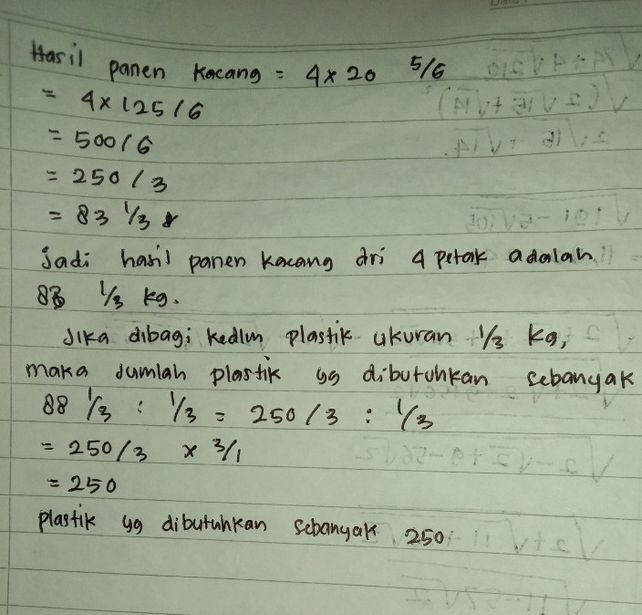 Hasil panen kacang = 4 x 20 5/6
= 4 x 125/6
= 500/6
= 250/3
= 83 1/3
jadi hasil panen kacang dri 4 petak adalah
83 1/3 kg.
Jika dibagi kedlm plastik ukuran 1/3 kg,
maka jumlah plastik yg dibutuhkan sebanyak
88 1/3 : 1/3 = 250/3 : 1/3
= 250/3 x 3/1
= 250
plastik yg dibutuhkan sebanyak 250